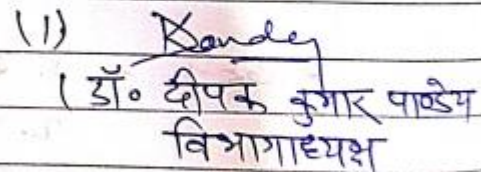 (1) Pandey
(डॉ० दीपक कुमार पाण्डेय
विभागाध्यक्ष